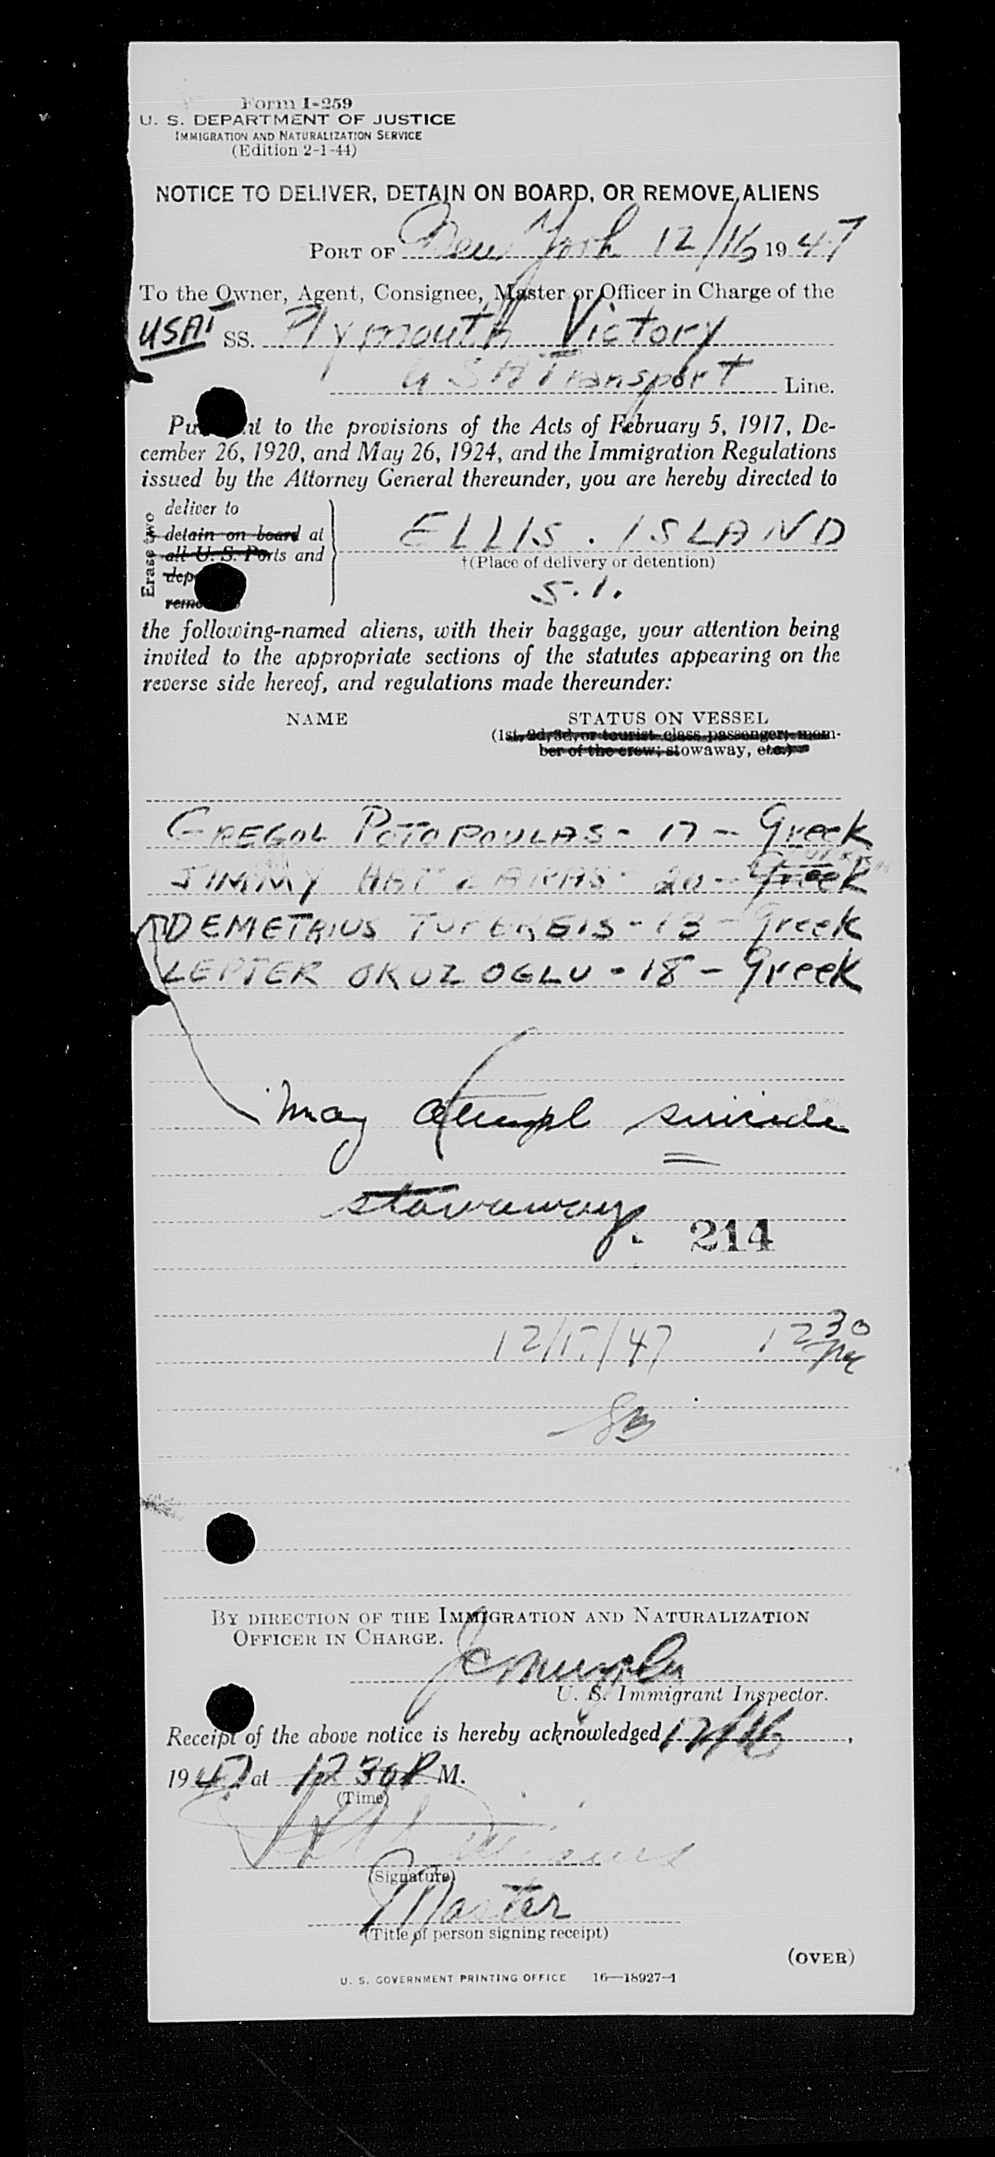 Form I-259
U. S. DEPARTMENT OF JUSTICE
IMMIGRATION AND NATURALIZATION SERVICE
(Edition 2-1-44)
NOTICE TO DELIVER, DETAIN ON BOARD, OR REMOVE ALIENS
PORT OF New York 12/16 1947
To the Owner, Agent, Consignee, Master or Officer in Charge of the
USAT SS. Plymouth Victory
U S A Transport Line.
to the provisions of the Acts of February 5, 1917, De-
cember 26, 1920, and May 26, 1924, and the Immigration Regulations
issued by the Attorney General thereunder, you are hereby directed to
Erase two
deliver to
detain on board at
all U. S. Ports and
ELLIS. ISLAND
†(Place of delivery or detention)
S.I.
the following-named aliens, with their baggage, your attention being
invited to the appropriate sections of the statutes appearing on the
reverse side hereof, and regulations made thereunder:
NAME STATUS ON VESSEL
(1st, 2d, 3d, or tourist class passenger; mem-
ber of the crew; stowaway, etc.)
GREGOL POTOPOULAS - 17 - Greek
JIMMY - 20 - Greek
DEMETRIUS - 13 - Greek
LEPTER OKUZOGLU - 18 - Greek
may attempt suicide
stowaway. 214
12/17/47 12 30
BY DIRECTION OF THE IMMIGRATION AND NATURALIZATION
OFFICER IN CHARGE.
U. S. Immigrant Inspector.
Receipt of the above notice is hereby acknowledged 12/16,
1947 at 12 30 P M.
(Time)
(Signature)
Master
(Title of person signing receipt)
(OVER)
U. S. GOVERNMENT PRINTING OFFICE 16—18927-1